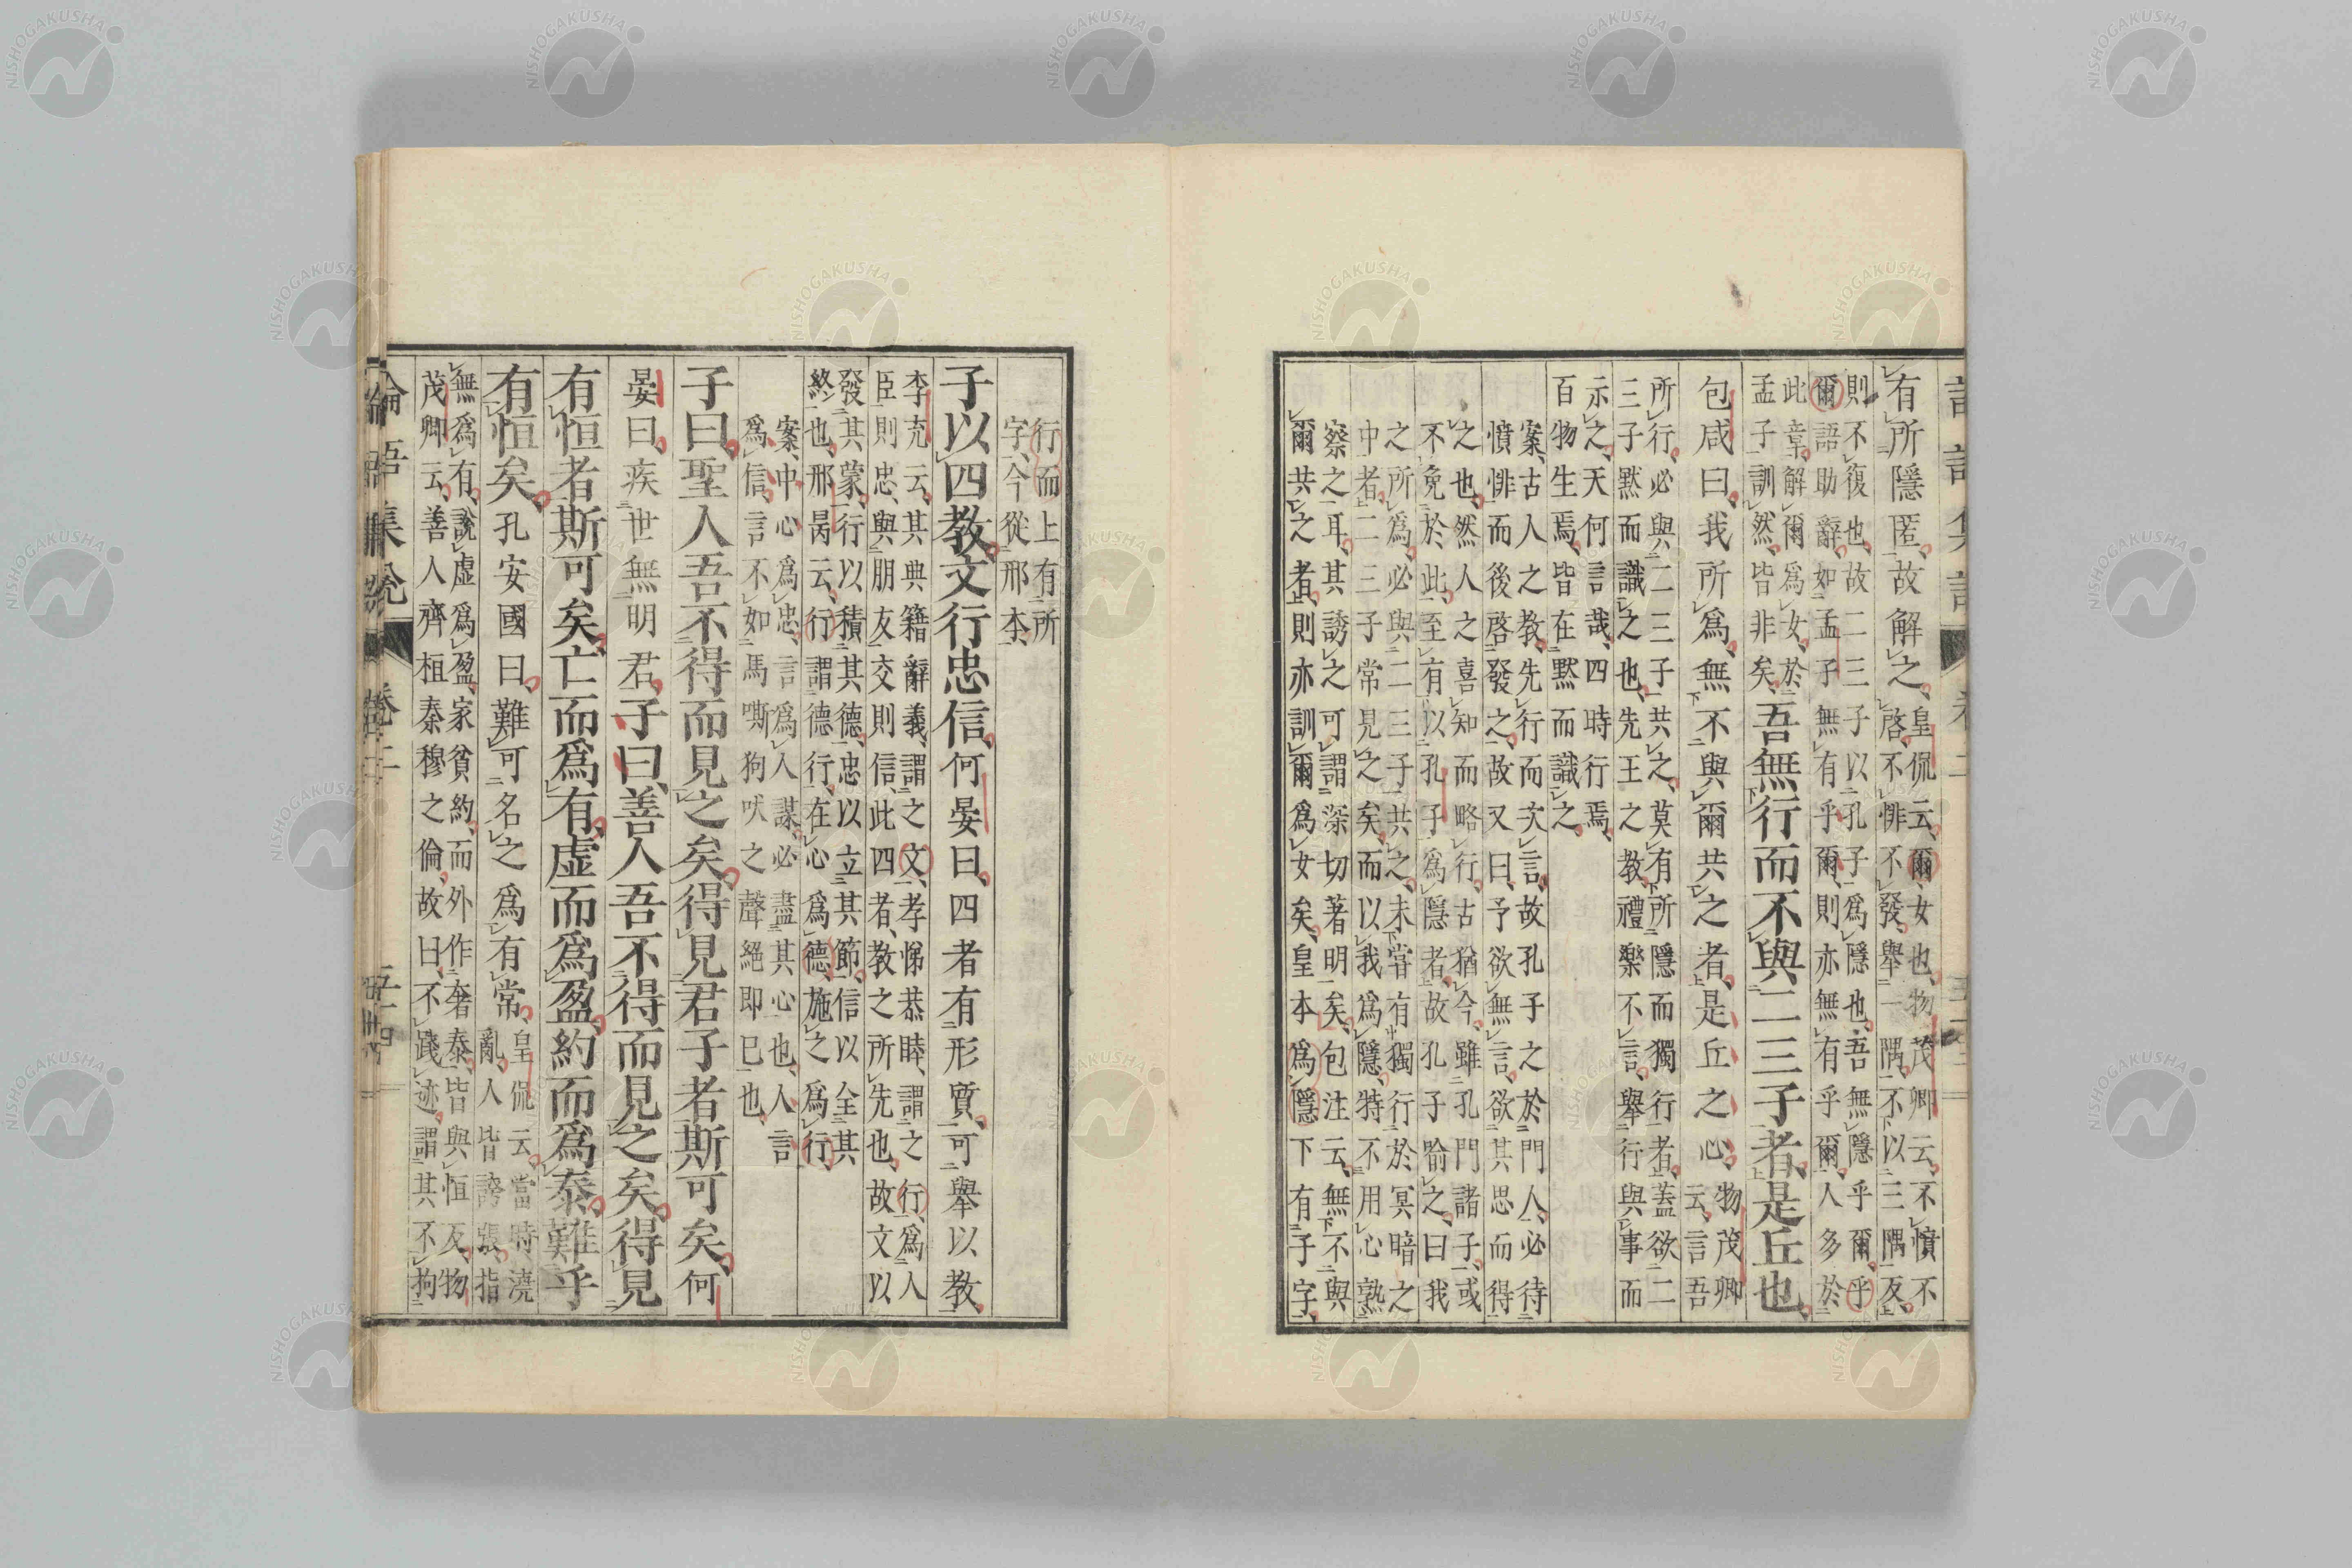 有所隱匿、故解之、
皇侃云、爾、女也、物茂卿云、不憤不
啓、不悱不發、舉一隅、不以三隅反、
則不復也、故二三子以孔子爲隱也、吾無隱乎爾、乎
爾語助辭、如孟子無有乎爾、則亦無有乎爾、人多於
此章、解爾爲女、於
孟子訓然、皆非矣、
吾無行而不與二三子者、是丘也、
包咸曰、我所爲、無不與爾共之者、是丘之心、
物茂卿
云、言吾
所行、必與二三子共之、莫有所隱而獨行者、蓋欲二
三子默而識之也、先王之教、禮樂不言、舉行與事而
示之、天何言哉、四時行焉、
百物生焉、皆在默而識之、
案、古人之教、先行而次言、故孔子之於門人、必待
憤悱而後啓發之、故又曰、予欲無言、欲其思而得
之也、然人之喜知而略行、古猶今、雖孔門諸子、或
不免於此、至有以孔子爲隱者、故孔子喻之、曰我
之所爲、必與二三子共之、未嘗有獨行於冥暗之
中者、二三子常見之矣、而以我爲隱、特不用心熟
察之耳、其誘之可謂深切著明矣、包注云、無不與
爾共之者、則亦訓爾爲女矣、皇本爲隱下有子字、
行而上有所
字、今從邢本、
子以四教、文行忠信、何晏曰、四者有形質、可舉以教、
李充云、其典籍辭義、謂之文、孝悌恭睦、謂之行、爲人
臣則忠、與朋友交則信、此四者、教之所先也、故文以
發其蒙、行以積其德、忠以立其節、信以全其
終也、邢昺云、行謂德行、在心爲德、施之爲行、
案、中心爲忠、言爲人謀、必盡其心也、人言
爲信、言不如馬嘶狗吠之聲絕即已也、
子曰、聖人吾不得而見之矣、得見君子者斯可矣、何
晏曰、疾世無明君、子曰、善人吾不得而見之矣、得見
有恒者斯可矣、亡而爲有、虛而爲盈、約而爲泰、難乎
有恒矣、孔安國曰、難可名之爲有常、
皇侃云、當時澆
亂、人皆誇張、指
無爲有、說虛爲盈、家貧約、而外作奢泰、皆與恒反、物
茂卿云、善人齊桓秦穆之倫、故曰、不踐迹、謂其不拘